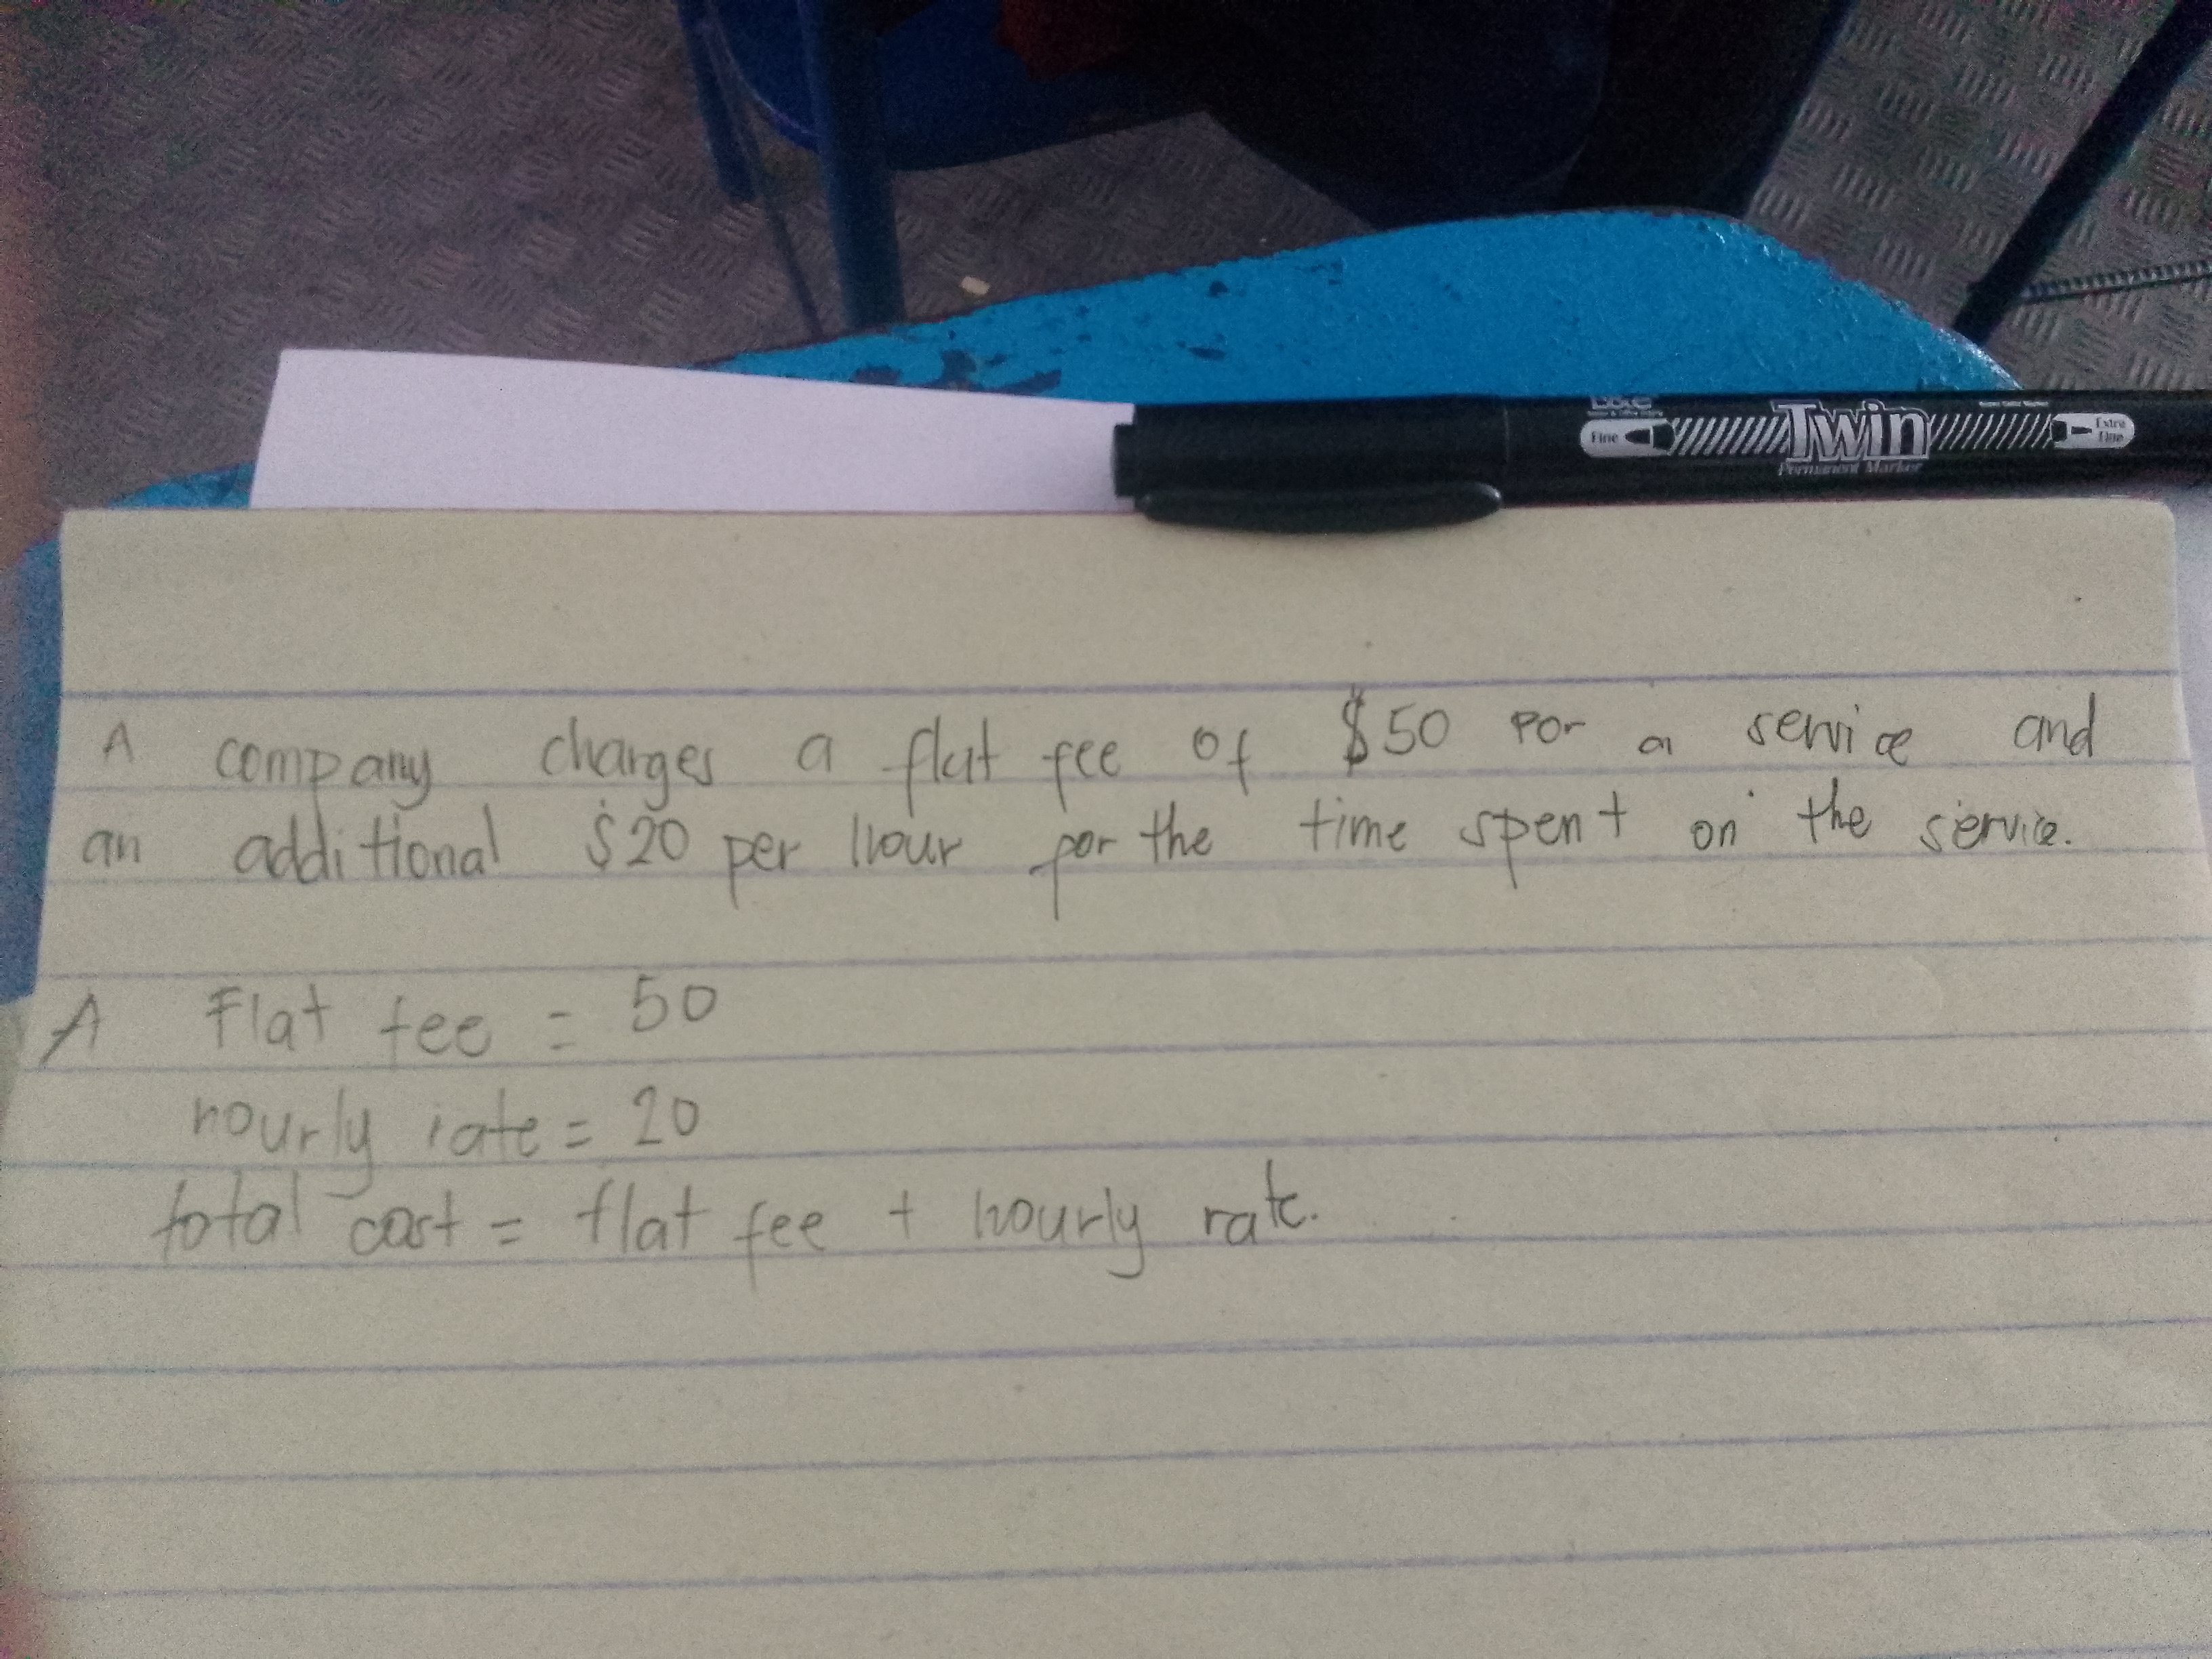 Fine Twin Extra Fine
Permanent Marker
A company charges a flat fee of $50 for a service and
an additional $20 per hour for the time spent on the service.
A Flat fee = 50
hourly rate = 20
total cost = flat fee + hourly rate.